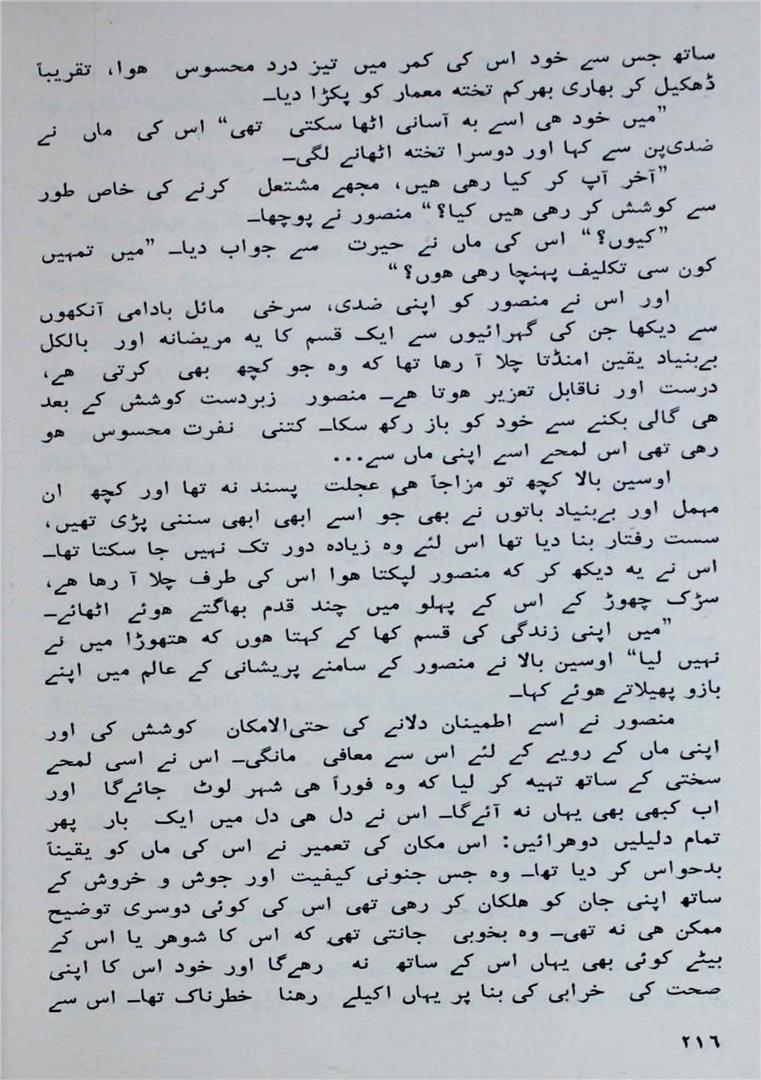 ساتھ جس سے خود اس کی کمر میں تیز درد محسوس ھوا، تقریباً
ڈھکیل کر بھاری بھرکم تختہ معمار کو پکڑا دیا۔
”میں خود ھی اسے بہ آسانی اٹھا سکتی تھی“ اس کی ماں نے
ضدی‌پن سے کہا اور دوسرا تختہ اٹھانے لگی۔
”آخر آپ کر کیا رھی ھیں، مجھے مشتعل کرنے کی خاص طور
سے کوشش کر رھی ھیں کیا؟“ منصور نے پوچھا۔
”کیوں؟“ اس کی ماں نے حیرت سے جواب دیا۔ ”میں تمہیں
کون سی تکلیف پہنچا رھی ھوں؟“
اور اس نے منصور کو اپنی ضدی، سرخی مائل بادامی آنکھوں
سے دیکھا جن کی گہرائیوں سے ایک قسم کا یہ مریضانہ اور بالکل
بےبنیاد یقین امنڈتا چلا آ رھا تھا کہ وہ جو کچھ بھی کرتی ھے،
درست اور ناقابل تعزیر ھوتا ھے۔ منصور زبردست کوشش کے بعد
ھی گالی بکنے سے خود کو باز رکھ سکا۔ کتنی نفرت محسوس ھو
رھی تھی اس لمحے اسے اپنی ماں سے...
اوسین بالا کچھ تو مزاجاً ھی عجلت پسند نہ تھا اور کچھ ان
مہمل اور بےبنیاد باتوں نے بھی جو اسے ابھی ابھی سننی پڑی تھیں،
سست رفتار بنا دیا تھا اس لئے وہ زیادہ دور تک نہیں جا سکتا تھا۔
اس نے یہ دیکھ کر کہ منصور لپکتا ھوا اس کی طرف چلا آ رھا ھے،
سڑک چھوڑ کے اس کے پہلو میں چند قدم بھاگتے ھوئے اٹھائے۔
”میں اپنی زندگی کی قسم کھا کے کہتا ھوں کہ ھتھوڑا میں نے
نہیں لیا“ اوسین بالا نے منصور کے سامنے پریشانی کے عالم میں اپنے
بازو پھیلاتے ھوئے کہا۔
منصور نے اسے اطمینان دلانے کی حتی‌الامکان کوشش کی اور
اپنی ماں کے رویے کے لئے اس سے معافی مانگی۔ اس نے اسی لمحے
سختی کے ساتھ تہیہ کر لیا کہ وہ فوراً ھی شہر لوٹ جائےگا اور
اب کبھی بھی یہاں نہ آئےگا۔ اس نے دل ھی دل میں ایک بار پھر
تمام دلیلیں دوھرائیں: اس مکان کی تعمیر نے اس کی ماں کو یقیناً
بدحواس کر دیا تھا۔ وہ جس جنونی کیفیت اور جوش و خروش کے
ساتھ اپنی جان کو ھلکان کر رھی تھی اس کی کوئی دوسری توضیح
ممکن ھی نہ تھی۔ وہ بخوبی جانتی تھی کہ اس کا شوھر یا اس کے
بیٹے کوئی بھی یہاں اس کے ساتھ نہ رھےگا اور خود اس کا اپنی
صحت کی خرابی کی بنا پر یہاں اکیلے رھنا خطرناک تھا۔ اس سے
۲۱٦